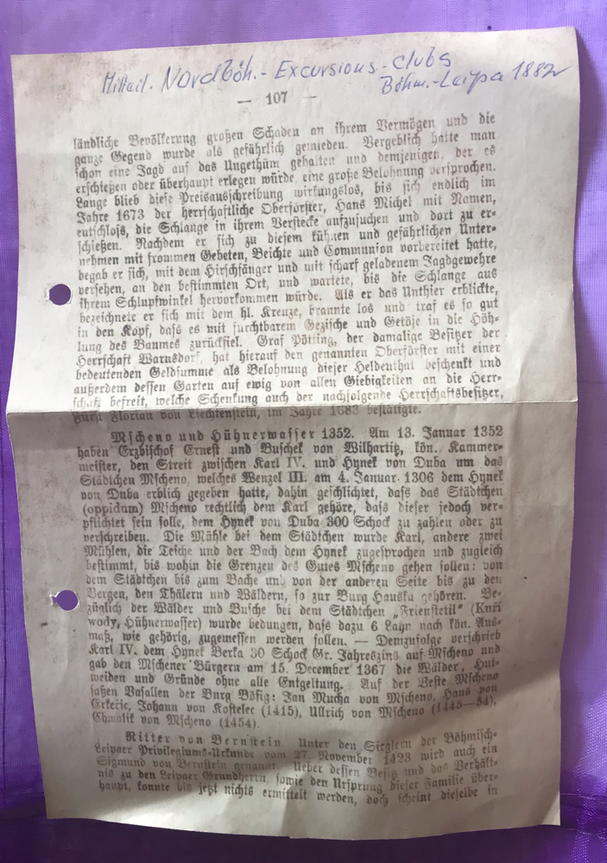 Mitteil. Nordböh.- Excursions-Clubs
Böhm.-Leipa 1882
— 107 —
ländliche Bevölkerung großen Schaden an ihrem Vermögen und die
ganze Gegend wurde als gefährlich gemieden. Vergeblich hatte man
schon eine Jagd auf das Ungethüm gehalten und demjenigen, der es
erschießen oder überhaupt erlegen würde, eine große Belohnung versprochen.
Lange blieb diese Preisausschreibung wirkungslos, bis sich endlich im
Jahre 1673 der herrschaftliche Oberförster, Hans Michel mit Namen,
entschloss, die Schlange in ihrem Verstecke aufzusuchen und dort zu er-
schießen. Nachdem er sich zu diesem kühnen und gefährlichen Unter-
nehmen mit frommen Gebeten, Beichte und Communion vorbereitet hatte,
begab er sich, mit dem Hirschfänger und mit scharf geladenem Jagdgewehre
versehen, an den bestimmten Ort, und wartete, bis die Schlange aus
ihrem Schlupfwinkel hervorkommen würde. Als er das Unthier erblickte,
bezeichnete er sich mit dem hl. Kreuze, brannte los und traf es so gut
in den Kopf, dass es mit furchtbarem Gezische und Getöse in die Höh-
lung des Baumes zurückfiel. Graf Pötting, der damalige Besitzer der
Herrschaft Warnsdorf, hat hierauf den genannten Oberförster mit einer
bedeutenden Geldsumme als Belohnung dieser Heldenthat beschenkt und
außerdem dessen Garten auf ewig von allen Giebigkeiten an die Herr-
schaft befreit, welche Schenkung auch der nachfolgende Herrschaftsbesitzer,
Fürst Florian von Liechtenstein, im Jahre 1683 bestätigte.
Mscheno und Hühnerwasser 1352. Am 13. Januar 1352
haben Erzbischof Ernest und Buschek von Wilhartitz, kön. Kammer-
meister, den Streit zwischen Karl IV. und Hynek von Duba um das
Städtchen Mscheno, welches Wenzel III. am 4. Januar 1306 dem Hynek
von Duba erblich gegeben hatte, dahin geschlichtet, dass das Städtchen
(oppidum) Mscheno rechtlich dem Karl gehöre, dass dieser jedoch ver-
pflichtet sein solle, dem Hynek von Duba 300 Schock zu zahlen oder zu
verschreiben. Die Mühle bei dem Städtchen wurde Karl, andere zwei
Mühlen, die Teiche und der Bach dem Hynek zugesprochen und zugleich
bestimmt, bis wohin die Grenzen des Gutes Mscheno gehen sollen: von
dem Städtchen bis zum Bache und von der anderen Seite bis zu den
Bergen, den Thälern und Wäldern, so zur Burg Hauska gehören. Be-
züglich der Wälder und Büsche bei dem Städtchen „Frienstetil“ (Kuři
wody, Hühnerwasser) wurde bedungen, dass dazu 6 Lahn nach kön. Aus-
maß, wie gehörig, zugemessen werden sollen. — Demzufolge verschrieb
Karl IV. dem Hynek Berka 30 Schock Gr. Jahreszins auf Mscheno und
gab den Mschener Bürgern am 15. December 1367 die Wälder, Hut-
weiden und Gründe ohne alle Entgeltung. Auf der Veste Mscheno
saßen Vasallen der Burg Bösig: Jan Mucha von Mscheno, Hans von
Johann von Kostelec (1415), Ullrich von Mscheno (1445—54),
Chwalik von Mscheno (1454).
Ritter von Bernstein. Unter den Sieglern der Böhmisch-
Leipaer Privilegiums-Urkunde vom 27. November 1423 wird auch ein
Sigmund von Bernstein genannt. Ueber dessen Besitz und das Verhält-
nis zu den Leipaer Grundherrn, sowie den Ursprung dieser Familie über-
haupt, konnte bis jetzt nichts ermittelt werden, doch scheint dieselbe in